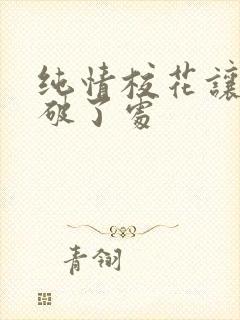 纯情校花讓
破了處
青翎